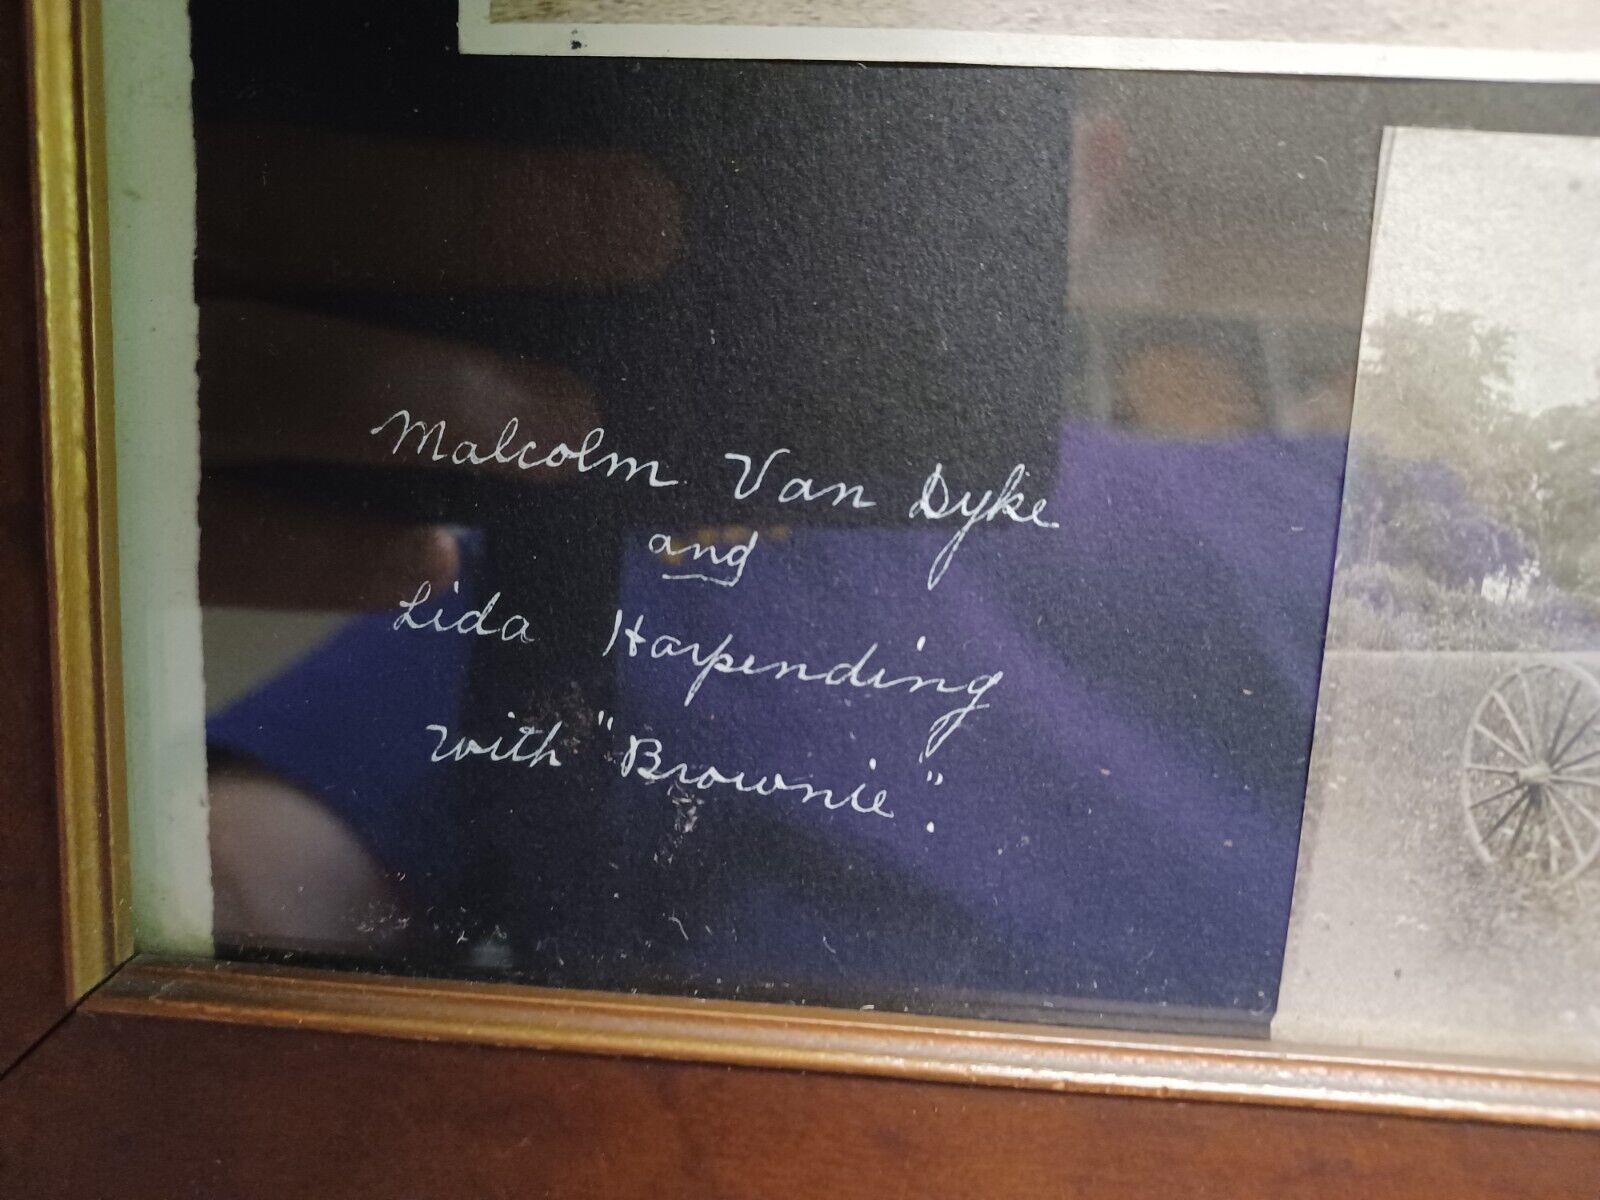 Malcolm Van Dyke
and
Lida Harpending
with "Brownie".